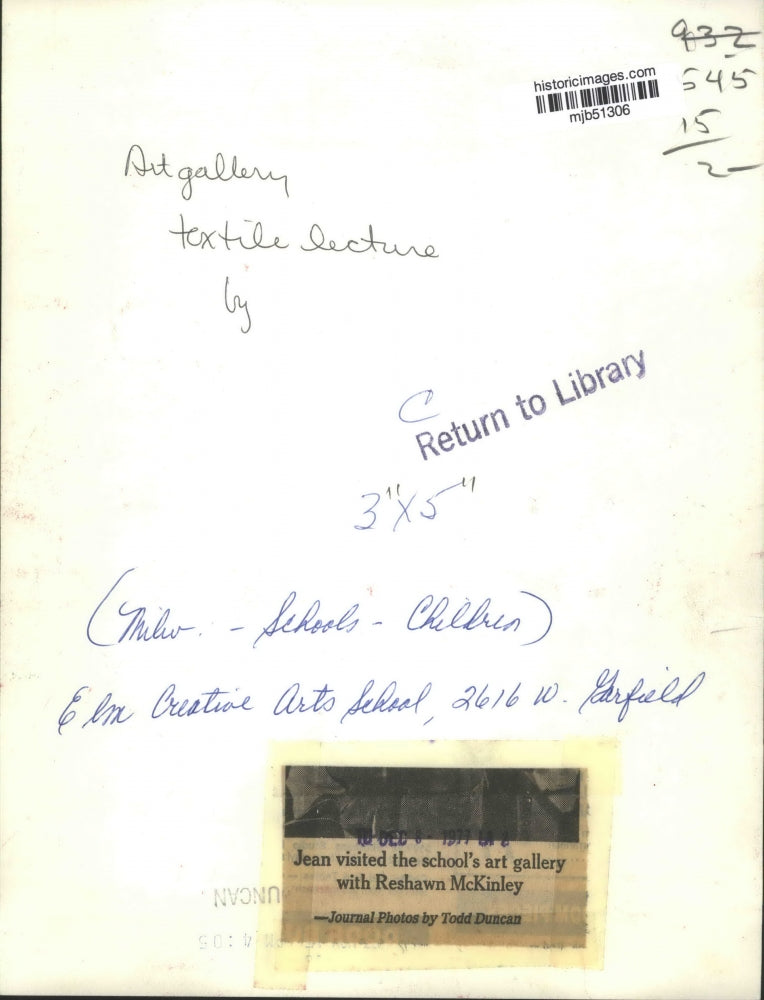 932
historicimages.com
545
mjb51306
15
2-
Art gallery
textile lecture
by
C
Return to Library
3"X5"
(Milw. - Schools - Children)
Elm Creative Arts School, 2616 W. Garfield
DEC 6 - 1977
Jean visited the school's art gallery
with Reshawn McKinley
—Journal Photos by Todd Duncan
DUNCAN
4:05